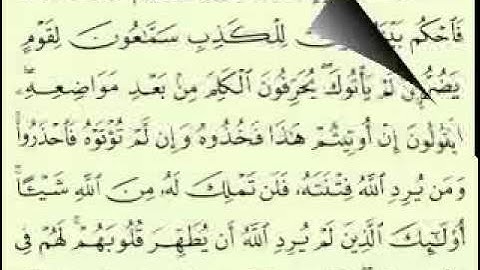 فَٱحْكُم لِلْكَذِبِ سَمَّٰعُونَ لِقَوْمٍ
لَمْ يَأْتُوكَ ۖ يُحَرِّفُونَ ٱلْكَلِمَ مِنۢ بَعْدِ مَوَاضِعِهِۦ ۖ
يَقُولُونَ إِنْ أُوتِيتُمْ هَٰذَا فَخُذُوهُ وَإِن لَّمْ تُؤْتَوْهُ فَٱحْذَرُوا۟ ۚ
وَمَن يُرِدِ ٱللَّهُ فِتْنَتَهُۥ فَلَن تَمْلِكَ لَهُۥ مِنَ ٱللَّهِ شَيْـًٔا ۚ
أُو۟لَٰٓئِكَ ٱلَّذِينَ لَمْ يُرِدِ ٱللَّهُ أَن يُطَهِّرَ قُلُوبَهُمْ ۚ لَهُمْ فِى